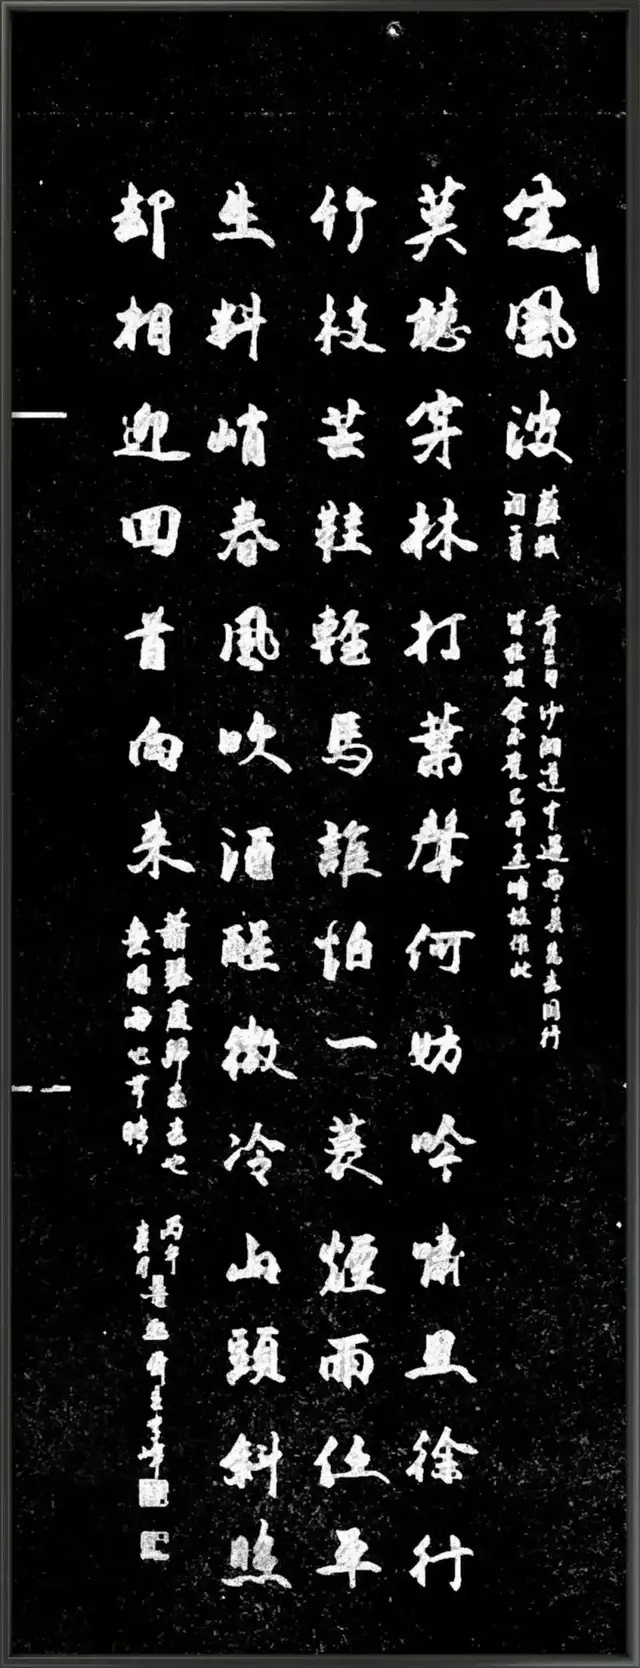 定風波
蘇軾
沙湖道中遇雨、具先去同行
皆狼狽余不覺已而遂晴故作此
莫聽穿林打葉聲何妨吟嘯且徐行
竹枝芒鞋輕馬誰怕一蓑煙雨任平
生料峭春風吹酒醒微冷山頭斜照
却相迎回首向来
蕭瑟處歸去去也
無風雨也無晴
丙午
春月